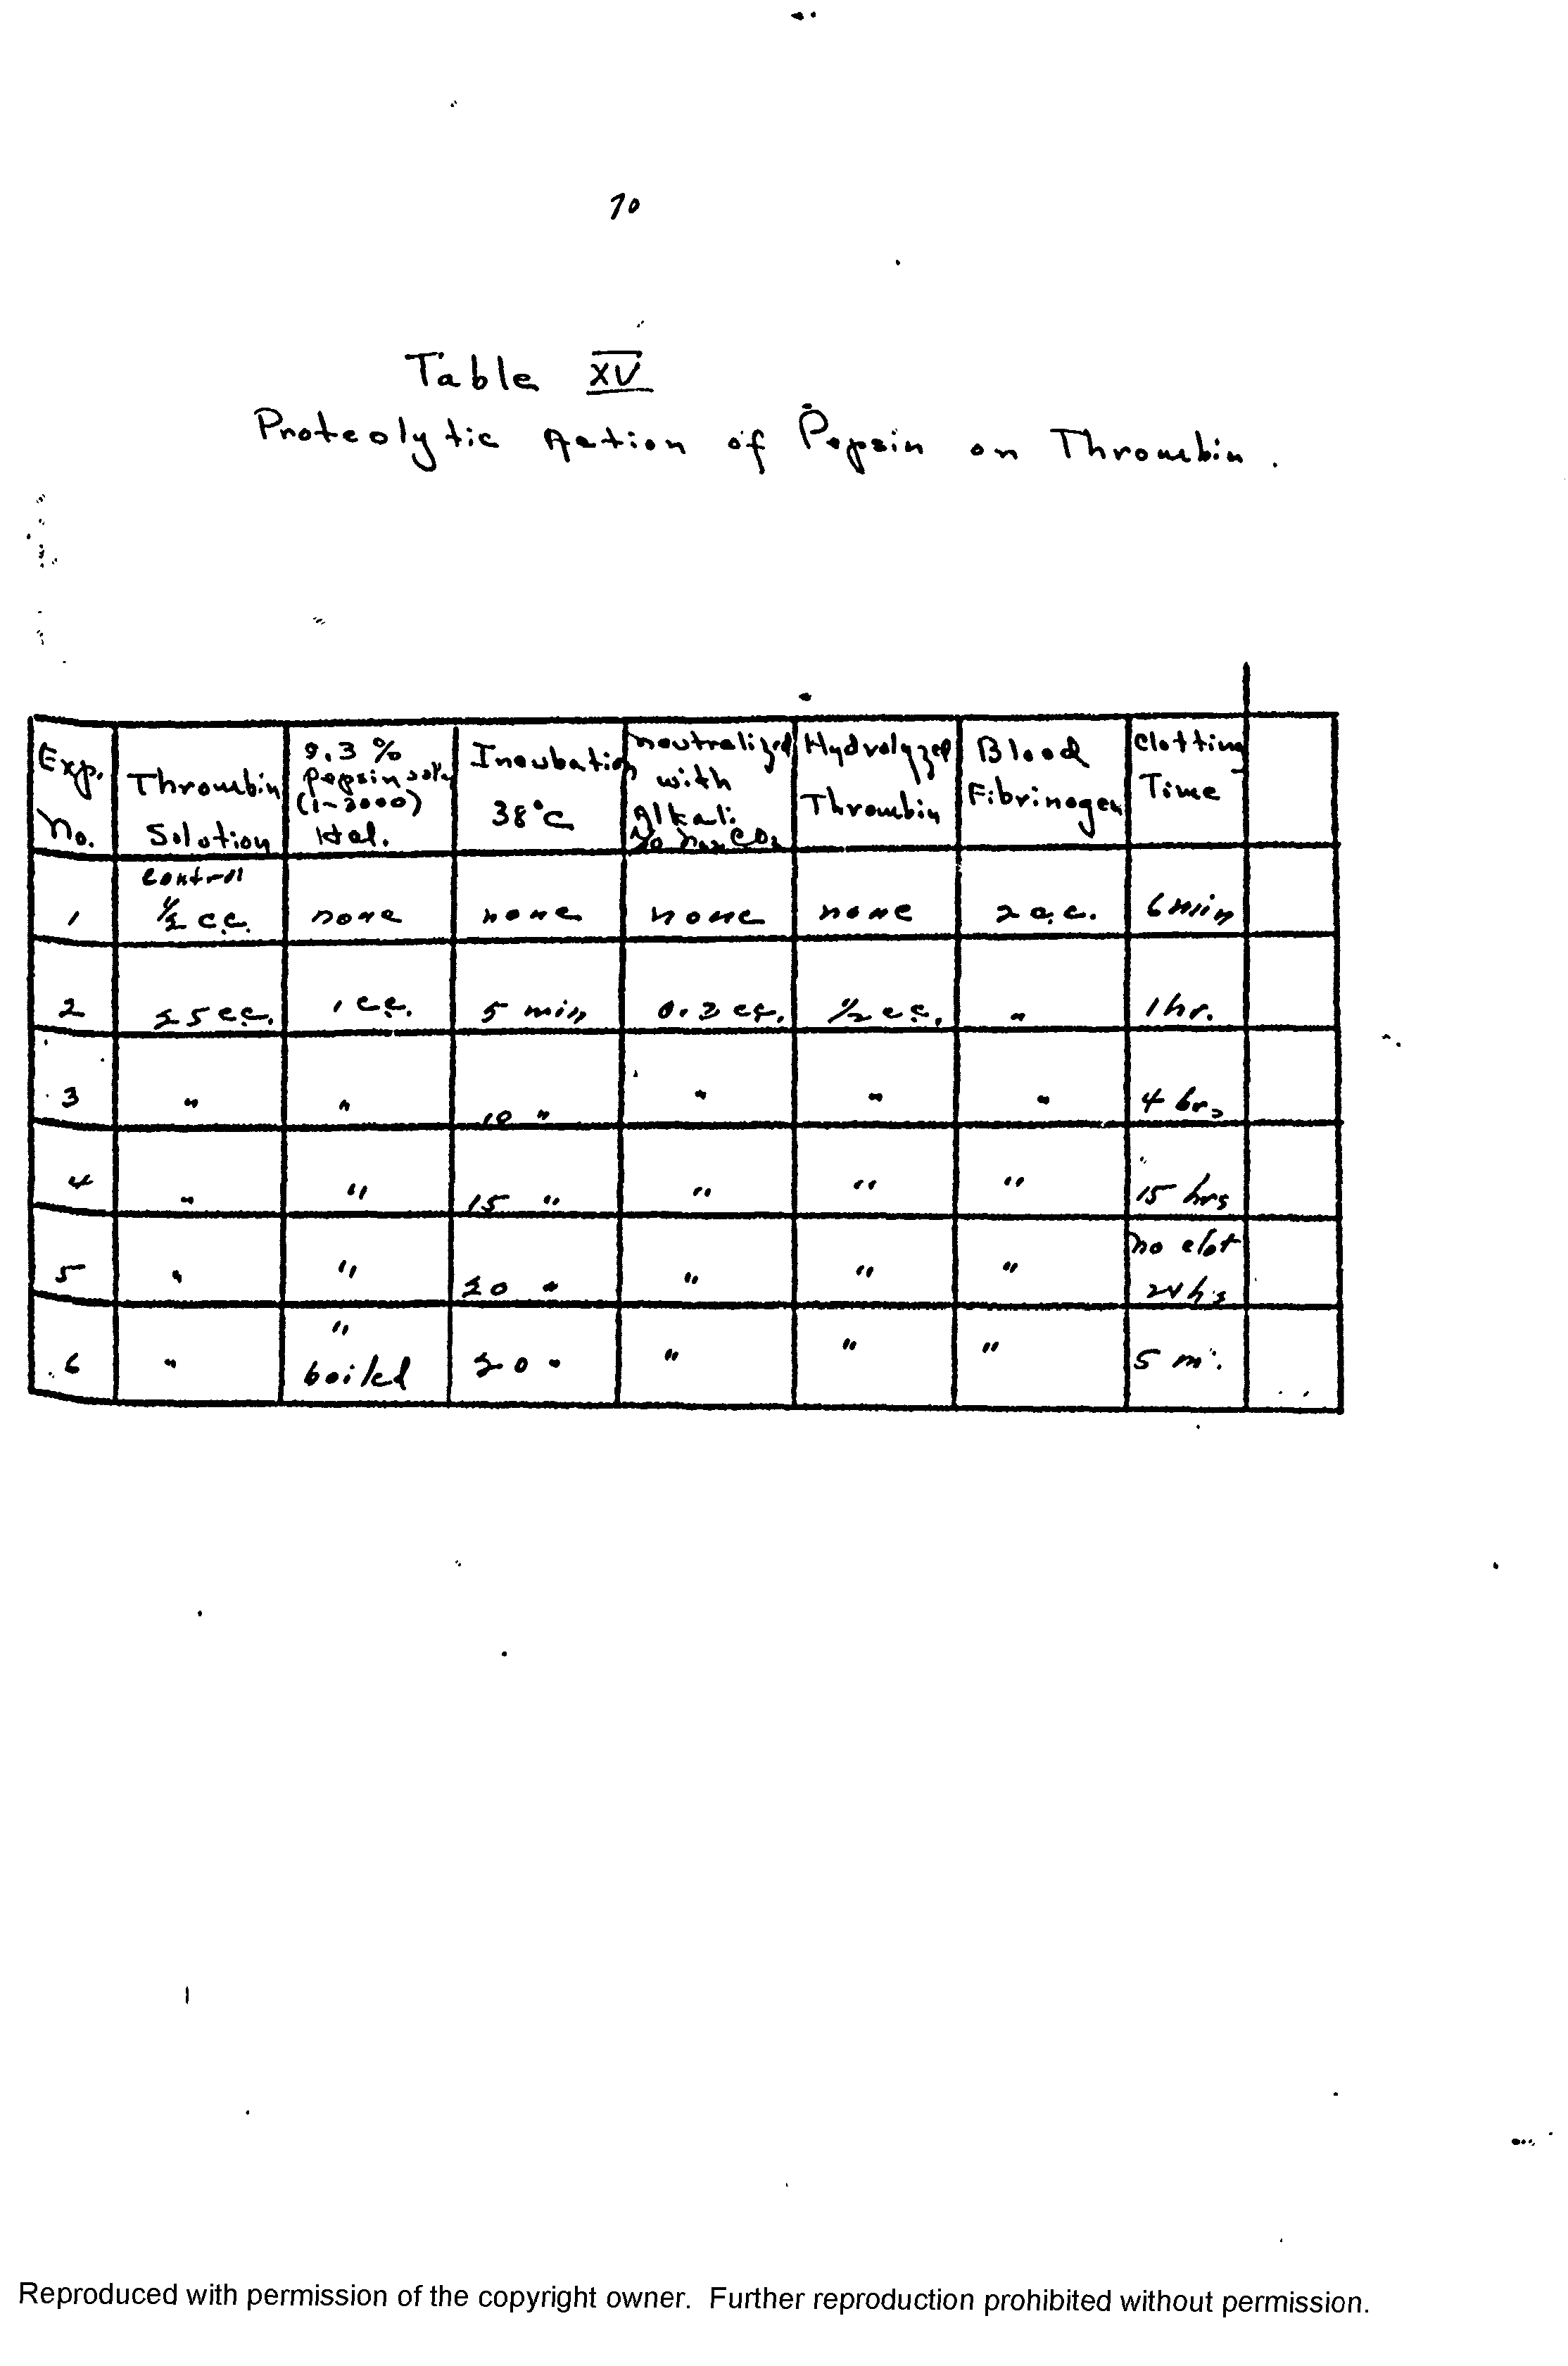 70
Table XV
Proteolytic Action of Pepsin on Thrombin.
Exp. No. Thrombin Solution 0.3 % Pepsin soln (1-3000) Hcl. Incubation 38°C neutralized with Alkali Hydrolyzed Thrombin Blood Fibrinogen Clotting Time
1 control ½ c.c. none none none none 2 c.c. 6 min
2 25 cc. 1 c.c. 5 min cc. ½ c.c. " 1 hr.
3 " " 10 " " " " 4 hrs
4 " " 15 " " " " 15 hrs
5 " " 20 " " " " no clot 24 hs
6 " " boiled 20 " " " " 5 m.
Reproduced with permission of the copyright owner. Further reproduction prohibited without permission.